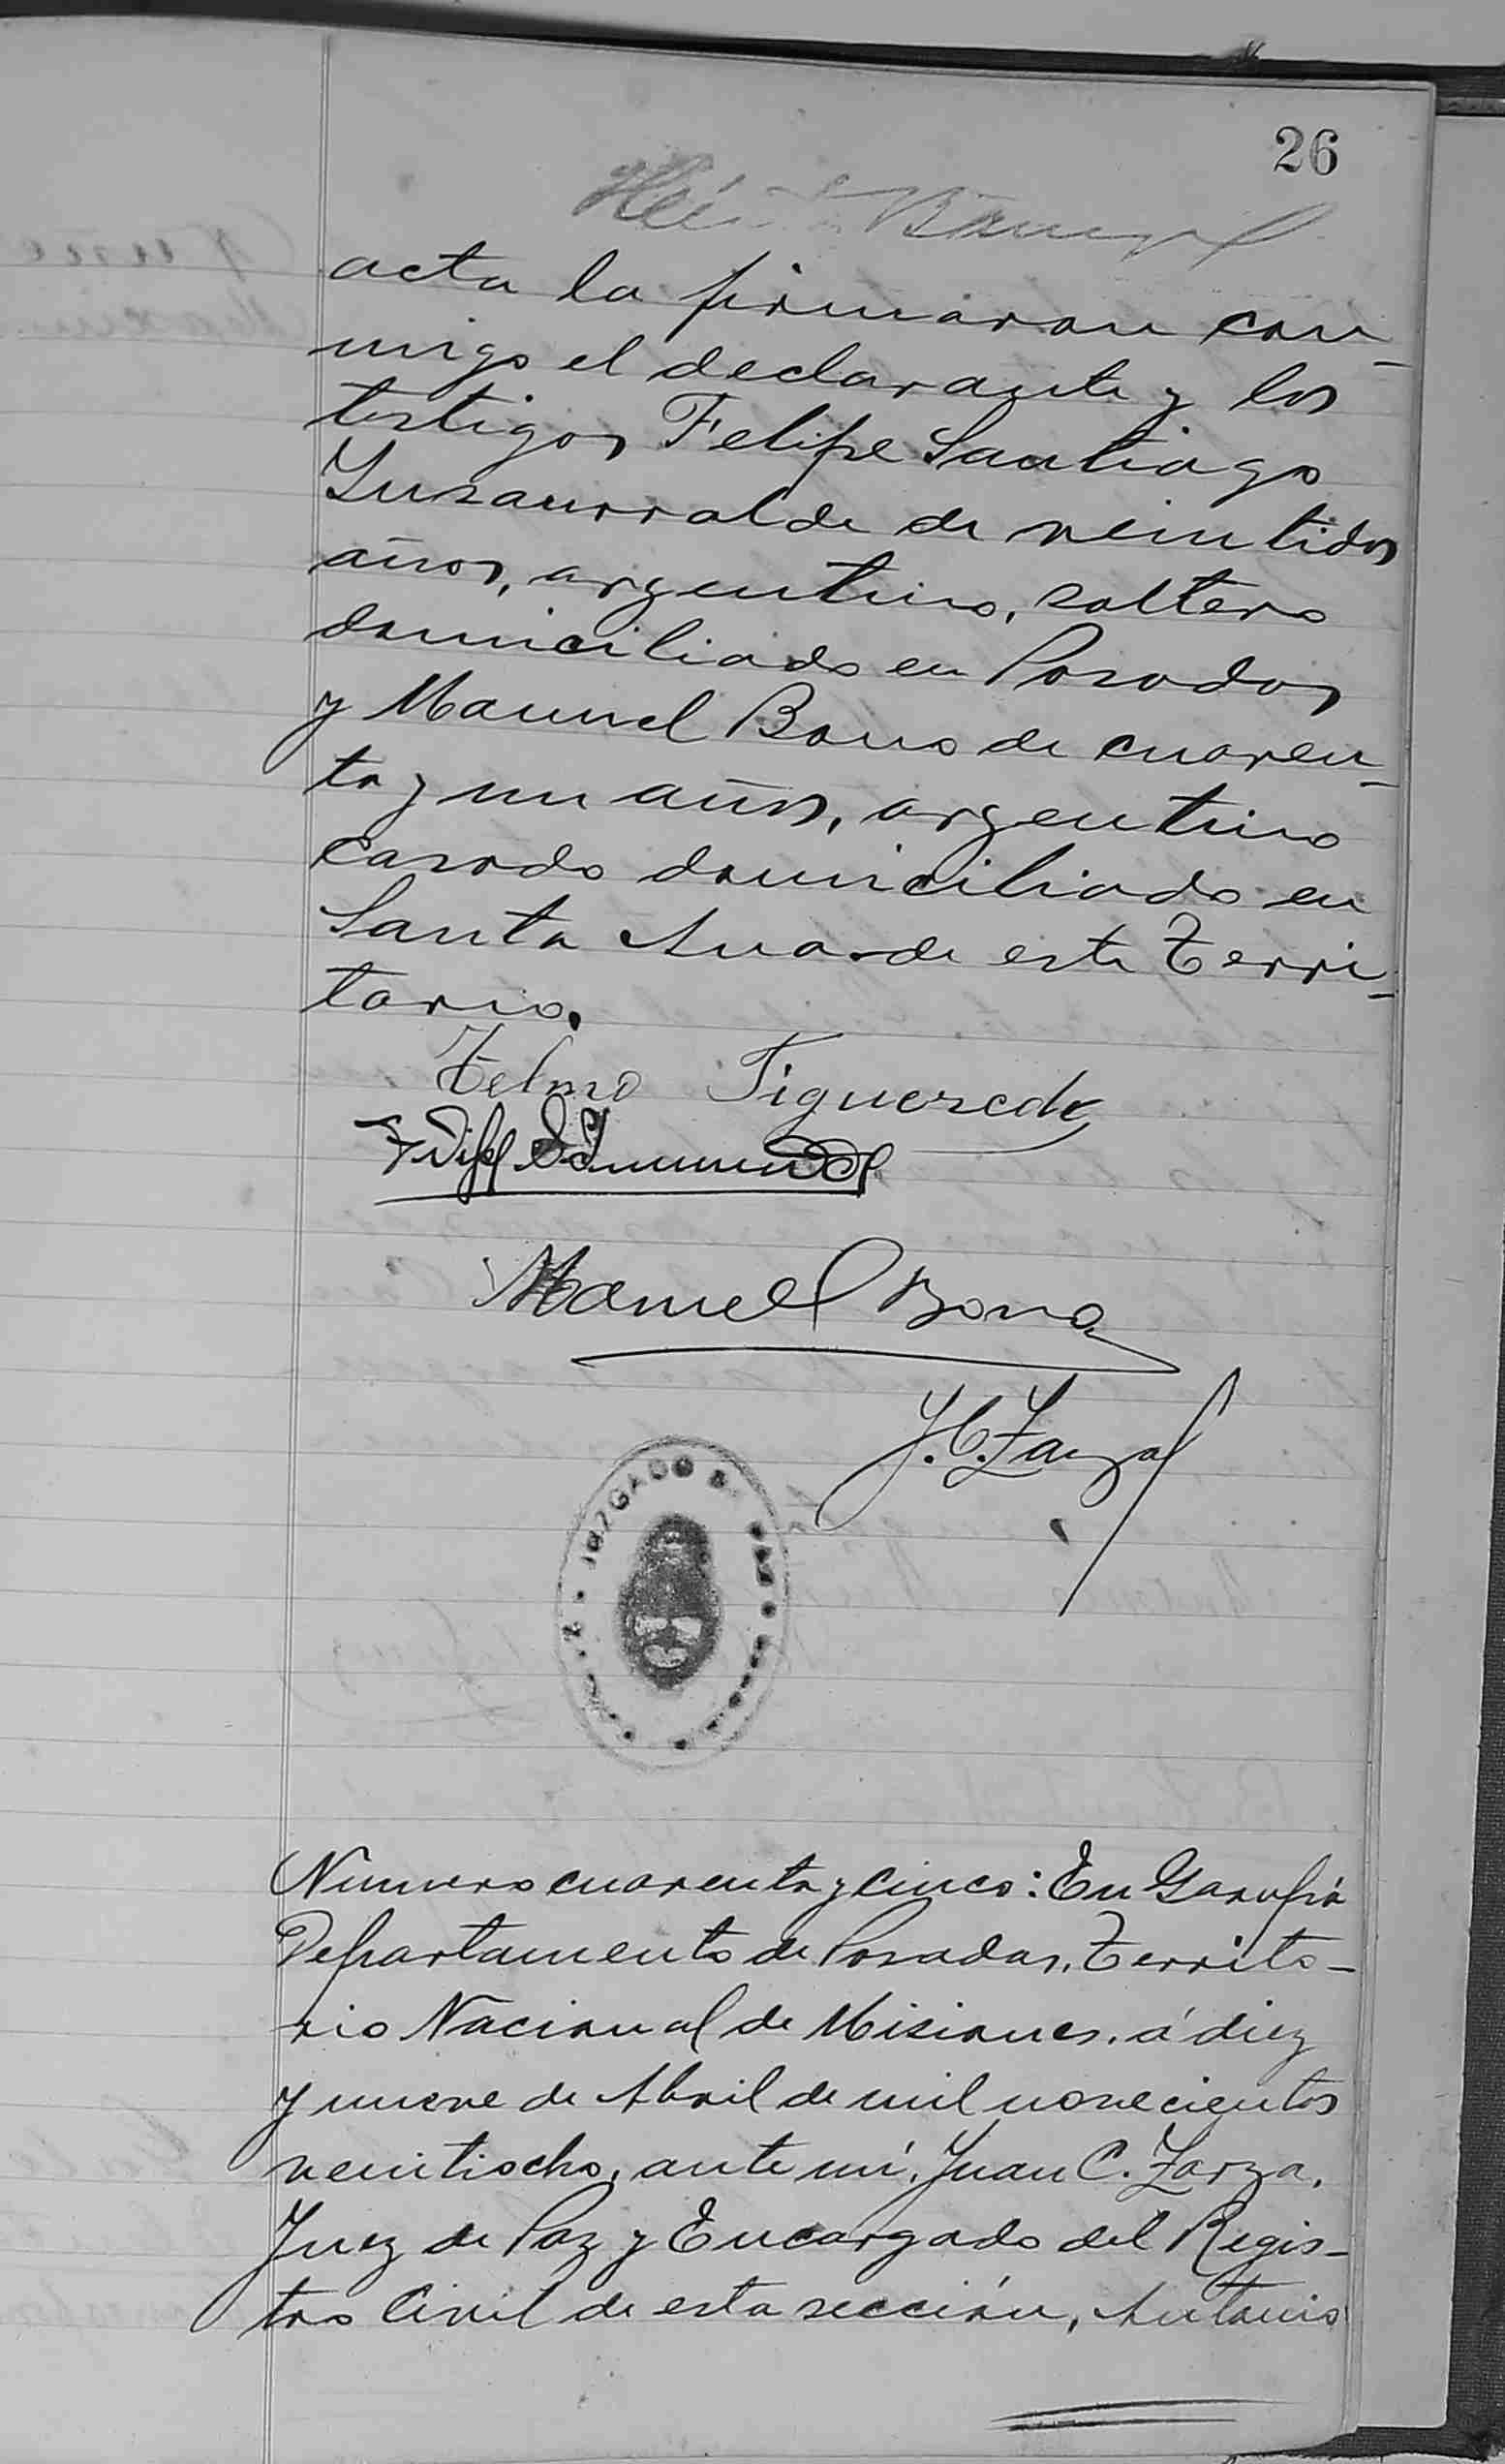 26
acta la firmaron con-
migo el declarante y los
testigos Felipe Santiago
Insaurralde de veintidos
años, argentino, soltero
domiciliado en Posadas
y Manuel Bono de cuaren-
ta y un años, argentino
casado domiciliado en
Santa Ana de este Terri-
torio.
Telmo Figueredo
Manuel Bono
J. C. Zarza
JUZGADO
Numero cuarenta y cinco: En Garupá
Departamento de Posadas, Territo-
rio Nacional de Misiones, á diez
y nueve de Abril de mil novecientos
veintiocho, ante mí, Juan C. Zarza,
Juez de Paz y Encargado del Regis-
tro Civil de esta sección, Antonio